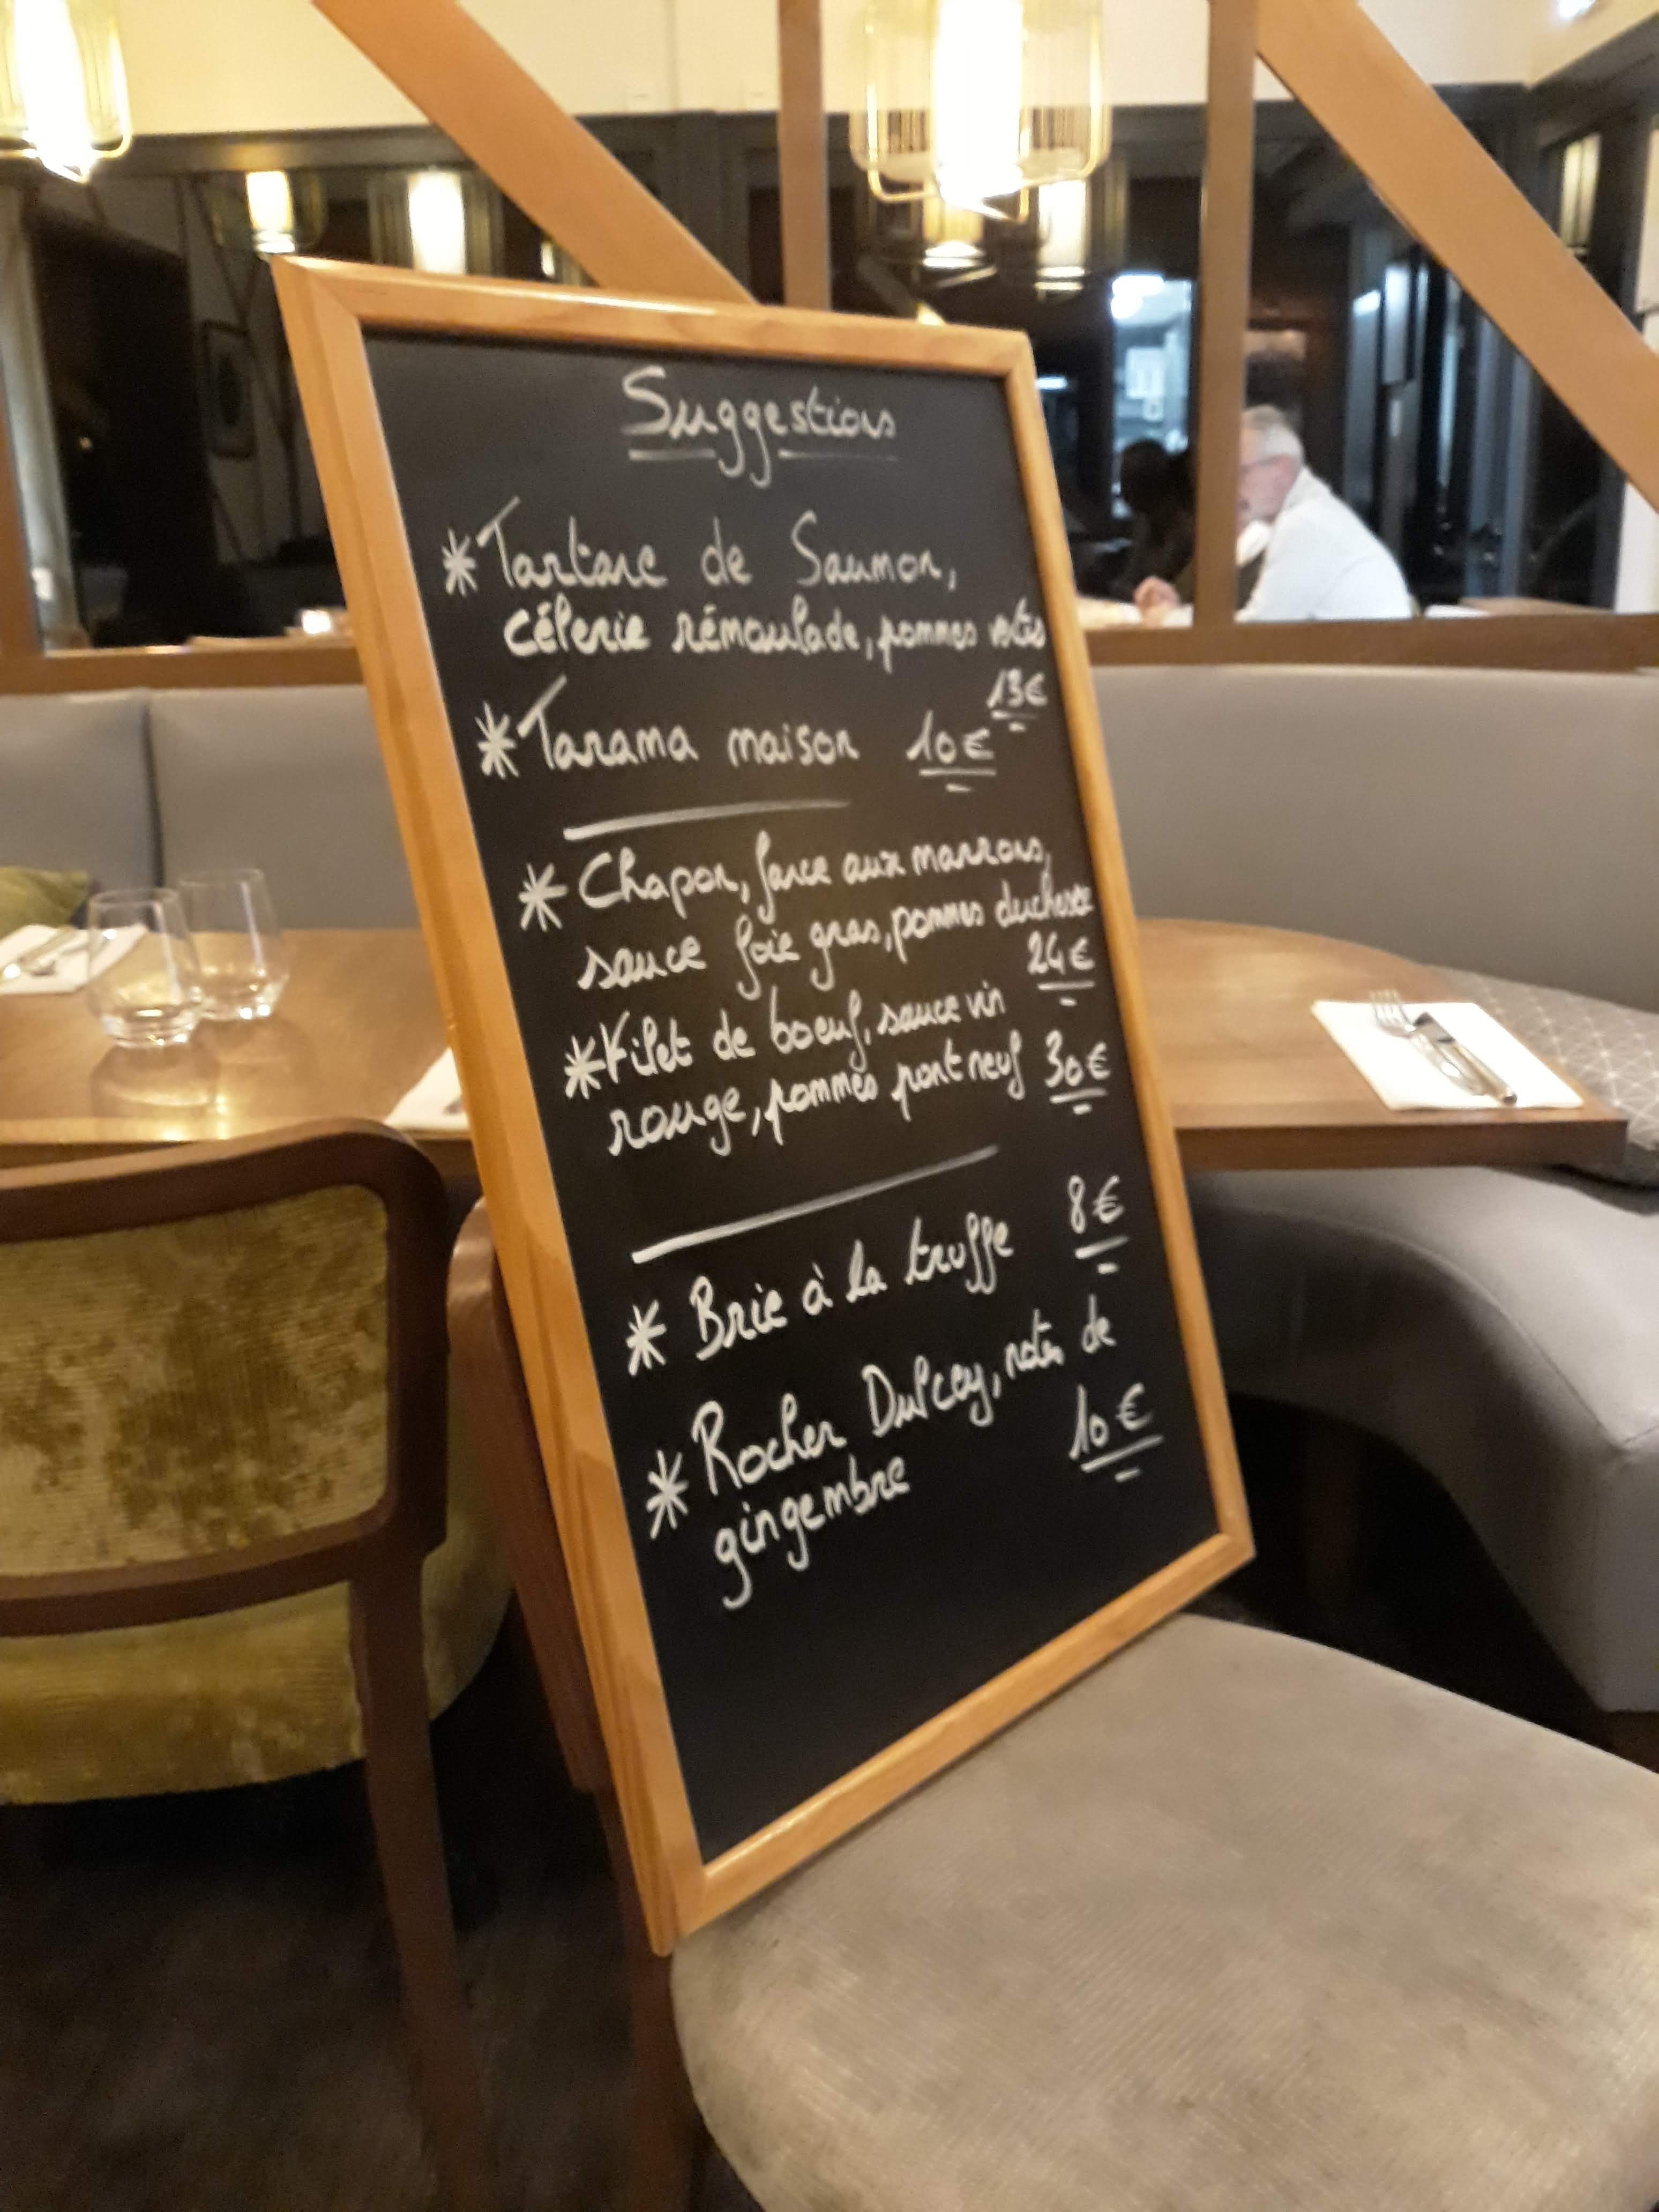 Suggestions
*Tartare de Saumon,
céleri rémoulade, pommes vertes
13€
*Tarama maison 10€
* Chapon, farce aux marrons,
sauce foie gras, pommes duchesse
24€
*Filet de boeuf, sauce vin
rouge, pommes pont neuf 30€
* Brie à la truffe 8€
* Rocher Dulcey, notes de
gingembre 10€